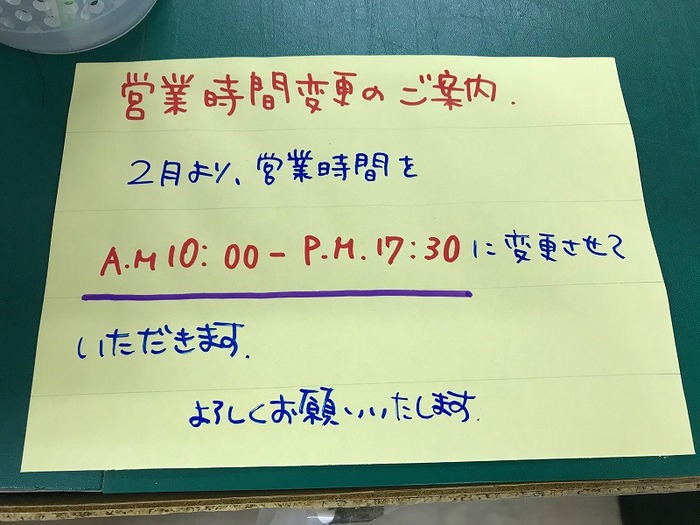 営業時間変更のご案内.
2月より、営業時間を
A.M 10:00 - P.M. 17:30 に変更させて
いただきます.
よろしくお願いいたします.